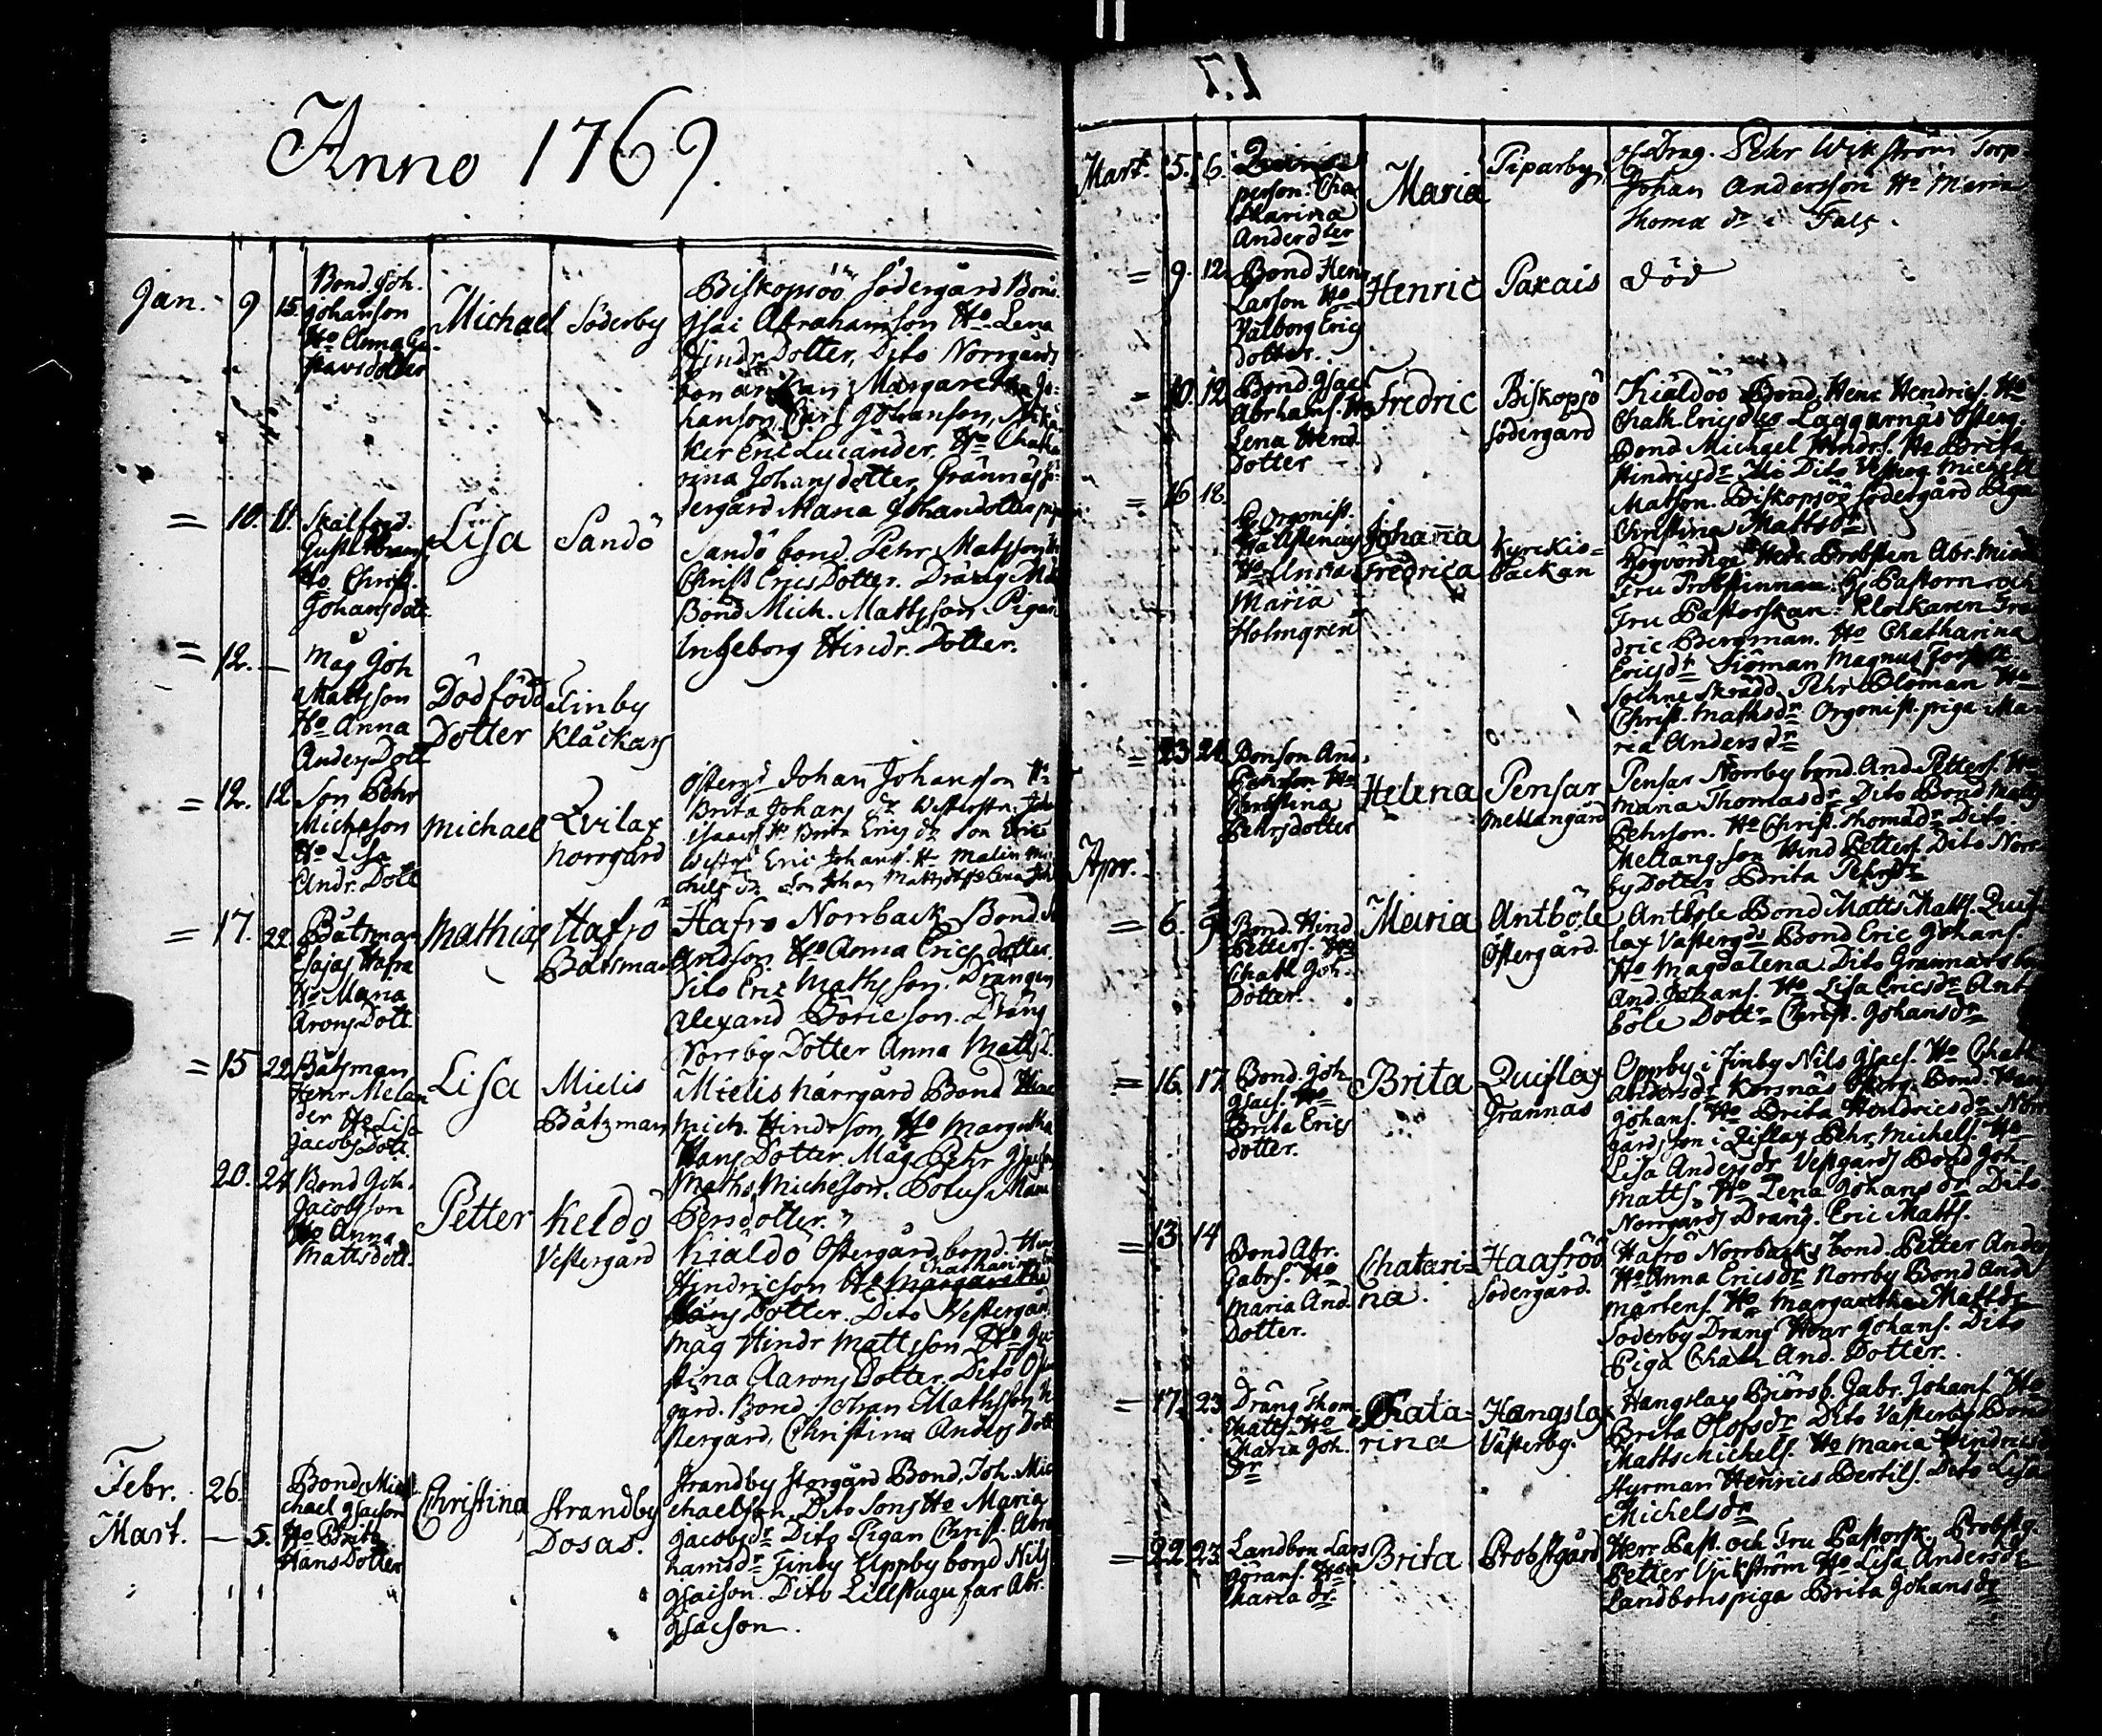 Anno 1769.
Jan. 9 15.
Bond. Joh.
Johanson
Ho Anna Gu-
stavsdotter
Michael
Söderby
Biskopsöö Södergård Bond.
Isac Abrahamson Ho Lena
Hindr. Dotter, Dito Norrgårds
Margaretha Jo-
hanson, Carl Johanson,
ker Eric Lucander, Ho Catha
rina Johans dotter, Grännäs Sö-
dergård Maria Johandotter
= 10. 11.
Gust. 
Ho Christ.
Johansdott.
Lisa
Sandö
Sandö bond. Pehr Matsson Ho
Christ Erics Dotter. Dräng
Bond Mich. Mattsson. Pigan
Ingeborg Hindr. Dotter.
= 12. —
Måg Joh
Mattsson
Ho Anna
Anders Dott
Dödfödd
Dotter
Finby
Klåckars
= 12. 12
Son Pehr
Michelson
Ho Lisa
Andr. Dott
Michael
Qvilax
Norrgård
Österg. Johan Johansson Ho
Brita Johans dr.
Isaacs Ho Brita Erics dr son Eric
Westrg. Eric Johans. Ho Malin Mi
chels dr Son Johan
= 17. 22.
Båtzman
Esajas Hafra
Ho Maria
Arons Dott.
Mathias
Hafrö
Båtsman
Hafrö Norrback Bond.
Andson. Ho Anna Erics dotter.
Dito Eric Mathsson. Drängen
Alexand Böricson. Dräng
Norrby Dotter Anna Matts D.
= 15 22
Båtzman
Henr Melan
der Ho Lisa
Jacobs Dott.
Lisa
Mielis
Båtzman
Mielis Härrgård Bond
Mich. Hindrson Ho Margretha
Hans Dotter. Måg Pehr Isacson
Maths Michelson.
Persdotter.
20. 24
Bond Joh.
Jacobsson
Ho Anna
Mattsdott.
Petter
Keldö
Vestergård
Kiäldö Östergård bond. Hin
Chatharina
Hindricson Ho Margaretha
Hans Dotter. Dito Vestergård
måg Hindr Mattsson Ho Ju-
stina Aarons Dotter. Dito Öster
gård. Bond. Johan Mathsson
stergård, Christina Anders Dott
Febr. 26.
Mart. — 5.
Bond Mi-
chael Isacson
Ho Brita
Hans Dotter
Christina
Strandby
Dosas.
Strandby Storgård Bond. Joh. Mic
chaelson. Dito Sons Ho Maria
Jacobs dr Dito Pigan Christ. Abra
hamsdr Finby Uppby bond Nils
Isacson. Dito Lillstugu far Abr.
Isacson.
17
Mart. 5. 6.
person. Cha
tharina
Anderdter
Maria
Piparby
Drag. Pehr Wikström Torp
Johan Andersson Ho Maria
Thoma dr i Fals.
= 9. 12.
Bond Hen
Larson Ho
Valborg Erics
dotter.
Henric
Paxais
död
= 10. 12
Bond Isac
Abrhams. Ho
Lena Hend
Dotter
Fredric
Biskopsö
Södergård
Kiäldöö Bond. Henr Hendrics. Ho
Chath. Ericsdr Laggarnäs Österg
Bond Michael Hendrs. Ho Brita
Hindricsdr Ho Dito Vesterg Michell
Matson. Biskopsöö Södergård Piga
Christina Mattsdr
= 16 18.
Orgonist.
Ho Anna
Maria
Holmgren
Johanna
Fredrica
Kyrckio-
backan
Högvördige Herr Probsten Abr.
Fru Probstinnan. Pastorn och
Fru Pastorskan. Klockaren Fre
dric Bergman. Ho Chatharina
Ericsdr Siöman Magnus
Sochne Skrädd. Pehr Bloman Ho
Christ. Mathsdr Orgonist. piga Ma
ria Andersdr
= 23 24
Bonson And.
Pehrson Ho
Christina
Pehrsdotter
Helena
Pensar
Mellangård
Pensar Norrby bond. And Petters. Ho
Maria Thomasdr Dito Bond Matts
Pehrson. Ho Christ. Thomadr Dito
Mellang. son Hind Petters. Dito Norr
by Dotter Brita Pehrsdr
Apr.
= 6. 9.
Bond. Hind
Petters. Ho
Chath Joh.
Dotter.
Maria
Antböle
Östergård.
Antböle Bond Matts Matts. Quif
lax Västergds Bond Eric Johans.
Ho Magdalena. Dito Grannas bo
And. Johans. Ho Lisa Ericsdr Ant-
böle Dottr Christ. Johansdr
= 16. 17
Bond. Joh
Isacs. Ho
Brita Erics
dotter.
Brita
Quiflax
Grannas
Oppby i Finby Nils Isacs. Ho Chath
Andersdr Korsnäs Österg. Bond. Hans
Johans. Ho Brita Hendricsdr Norr
gårds son i Qiflax Pehr Michels. Ho
Lisa Anders dr Vestgårds Bond Joh
Matts. Ho Lena Johans dr Dito
Norrgårds Dräng. Eric Matts.
= 13 14
Bond Abr.
Gabrs. Ho
Maria And.
Dotter.
Chatari-
na.
Haafröö
Södergård.
Hafrö Norrbacks bond. Petter Anders
Ho Anna Ericsdr Norrby Bond And
Mårtens. Ho Margaretha Mattsdr
Söderby Dräng Henr Johans. Dito
Piga Chath And. Dotter.
= 17. 23
Dräng Thom.
Matts. Ho
Maria Joh.
dr
Chata-
rina
Hangslax
Västerby.
Hangslax Biörsb. Gabr. Johans. Ho
Brita Olofsdr Dito Västerby Bond
Matts Michels. Ho Maria Hindrics
Styrman Henrics Bertils. Dito Lisa
Michelsdr
= 22. 23
Landbon Lars
Görans. Ho
Maria dr.
Brita
Probstgård
Herr Past. och Fru Pastorsk. Probstg.
Petter Vikström Ho Lisa Andersdr
Landbons piga Brita Johansdr